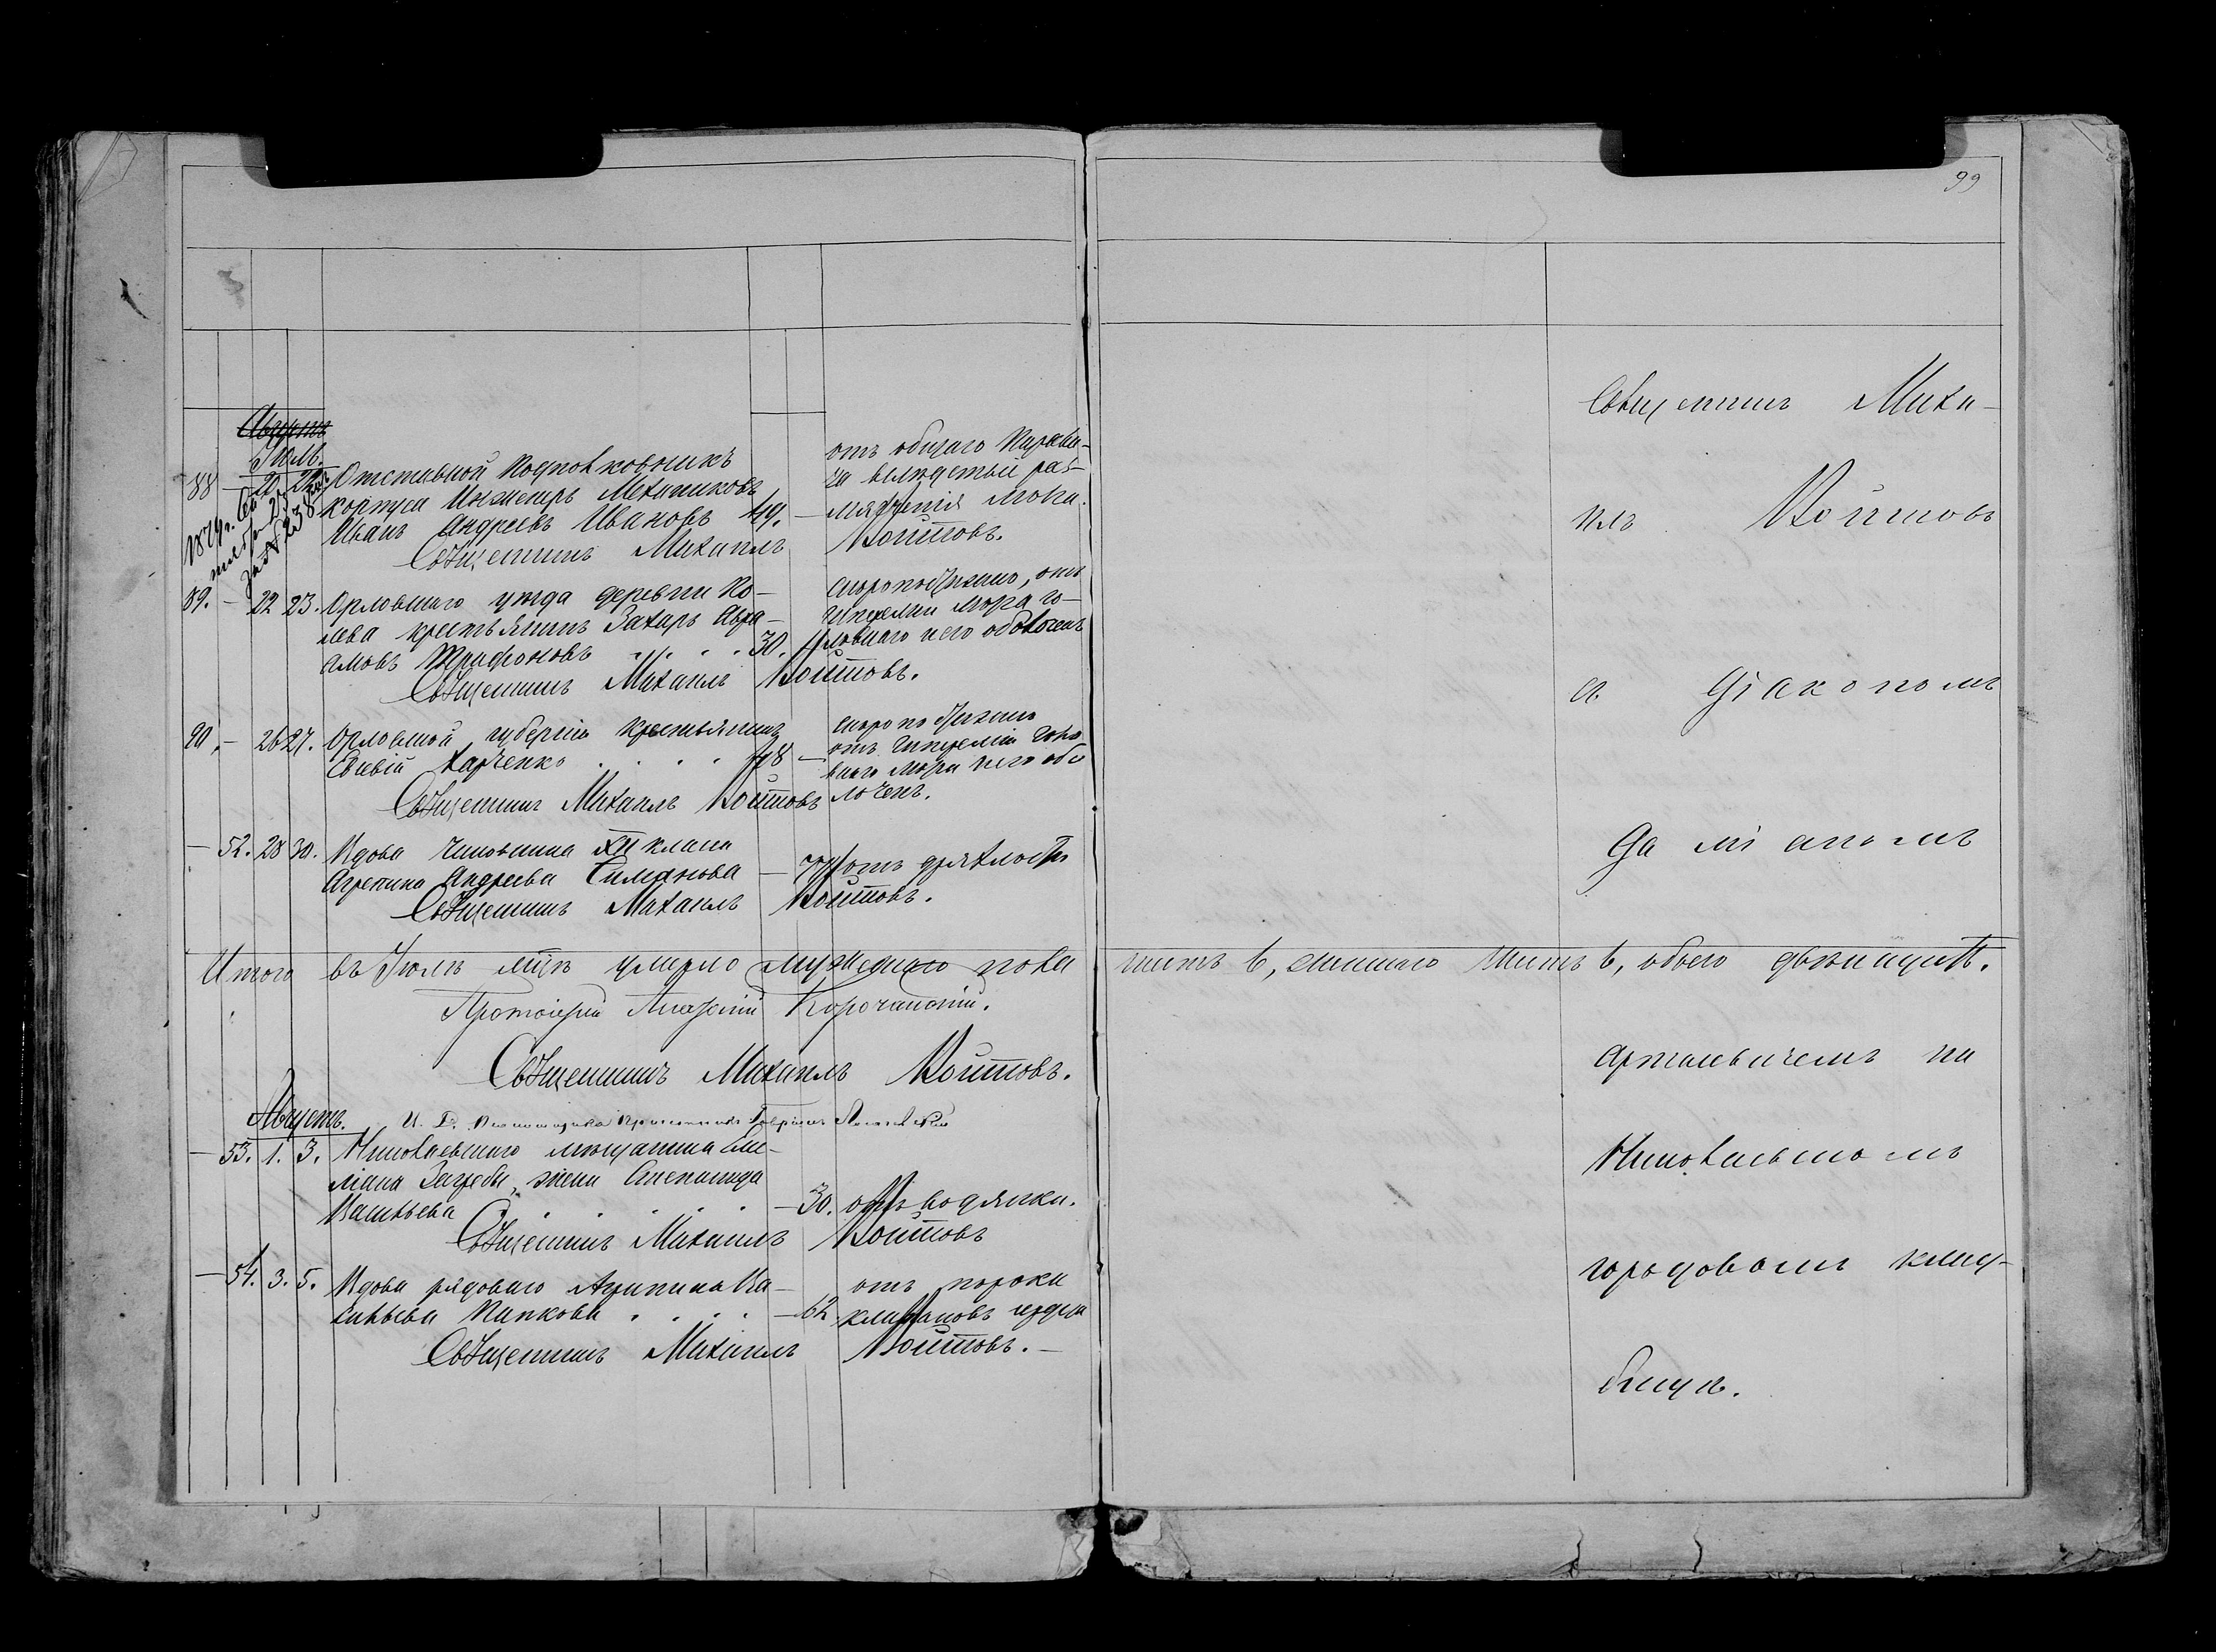 99
Августъ
Іюль.
88 — 20. 22. Отставной Подполковникъ
корпуса Инженеръ Механиковъ
Иванъ Андреевъ Ивановъ 49. —
отъ общаго Парали-
ча вслѣдствіи раз-
мягченія мозга.
Священникъ Михаилъ Войтовъ.
1879 г.
89. — 22 23. Орловскаго уѣзда деревни Ко-
лева крестьянинъ Захаръ Авра-
амовъ Трифоновъ . . . . 30. —
скоропостижно, отъ
гиперемии мозга го-
ловнаго и его оболочекъ
Священникъ Михаилъ Войтовъ.
90. — 26 27. Орловской губерніи крестьянинъ
Евсевій Харченко . . . . 48 —
скоропостижно
отъ гипереміи голо
внаго мозга и его обо
лочекъ.
Священникъ Михаилъ Войтовъ
— 52. 28 30. Вдова чиновника XII класса
Агрепина Андреева Симонова — 77
отъ дряхлости
Священникъ Михаилъ Войтовъ.
Итого въ Іюлѣ мѣсяцѣ умерло мужескаго пола шесть 6, женскаго шесть 6, обоего двѣнадцать.
Протоіерей Корочанскій.
Священникъ Михаилъ Войтовъ.
Августъ.
И. Д. Псаломщика
— 53. 1. 3. Николаевскаго мѣщанина Еме-
ліана Загребы, жена Степанида
Васильева . . . . . — 30. отъ водянки.
Священникъ Михаилъ Войтовъ
— 54. 3. 5. Вдова рядоваго Агрипина Ва-
сильева Папкова . . . . — 62
отъ порока
клапановъ сердца
Священникъ Михаилъ Войтовъ. —
Священникъ Миха-
илъ Войтовъ
съ Діакономъ
Даміаномъ
Артасевичемъ на
Николаевскомъ
городовомъ клад-
бищѣ.